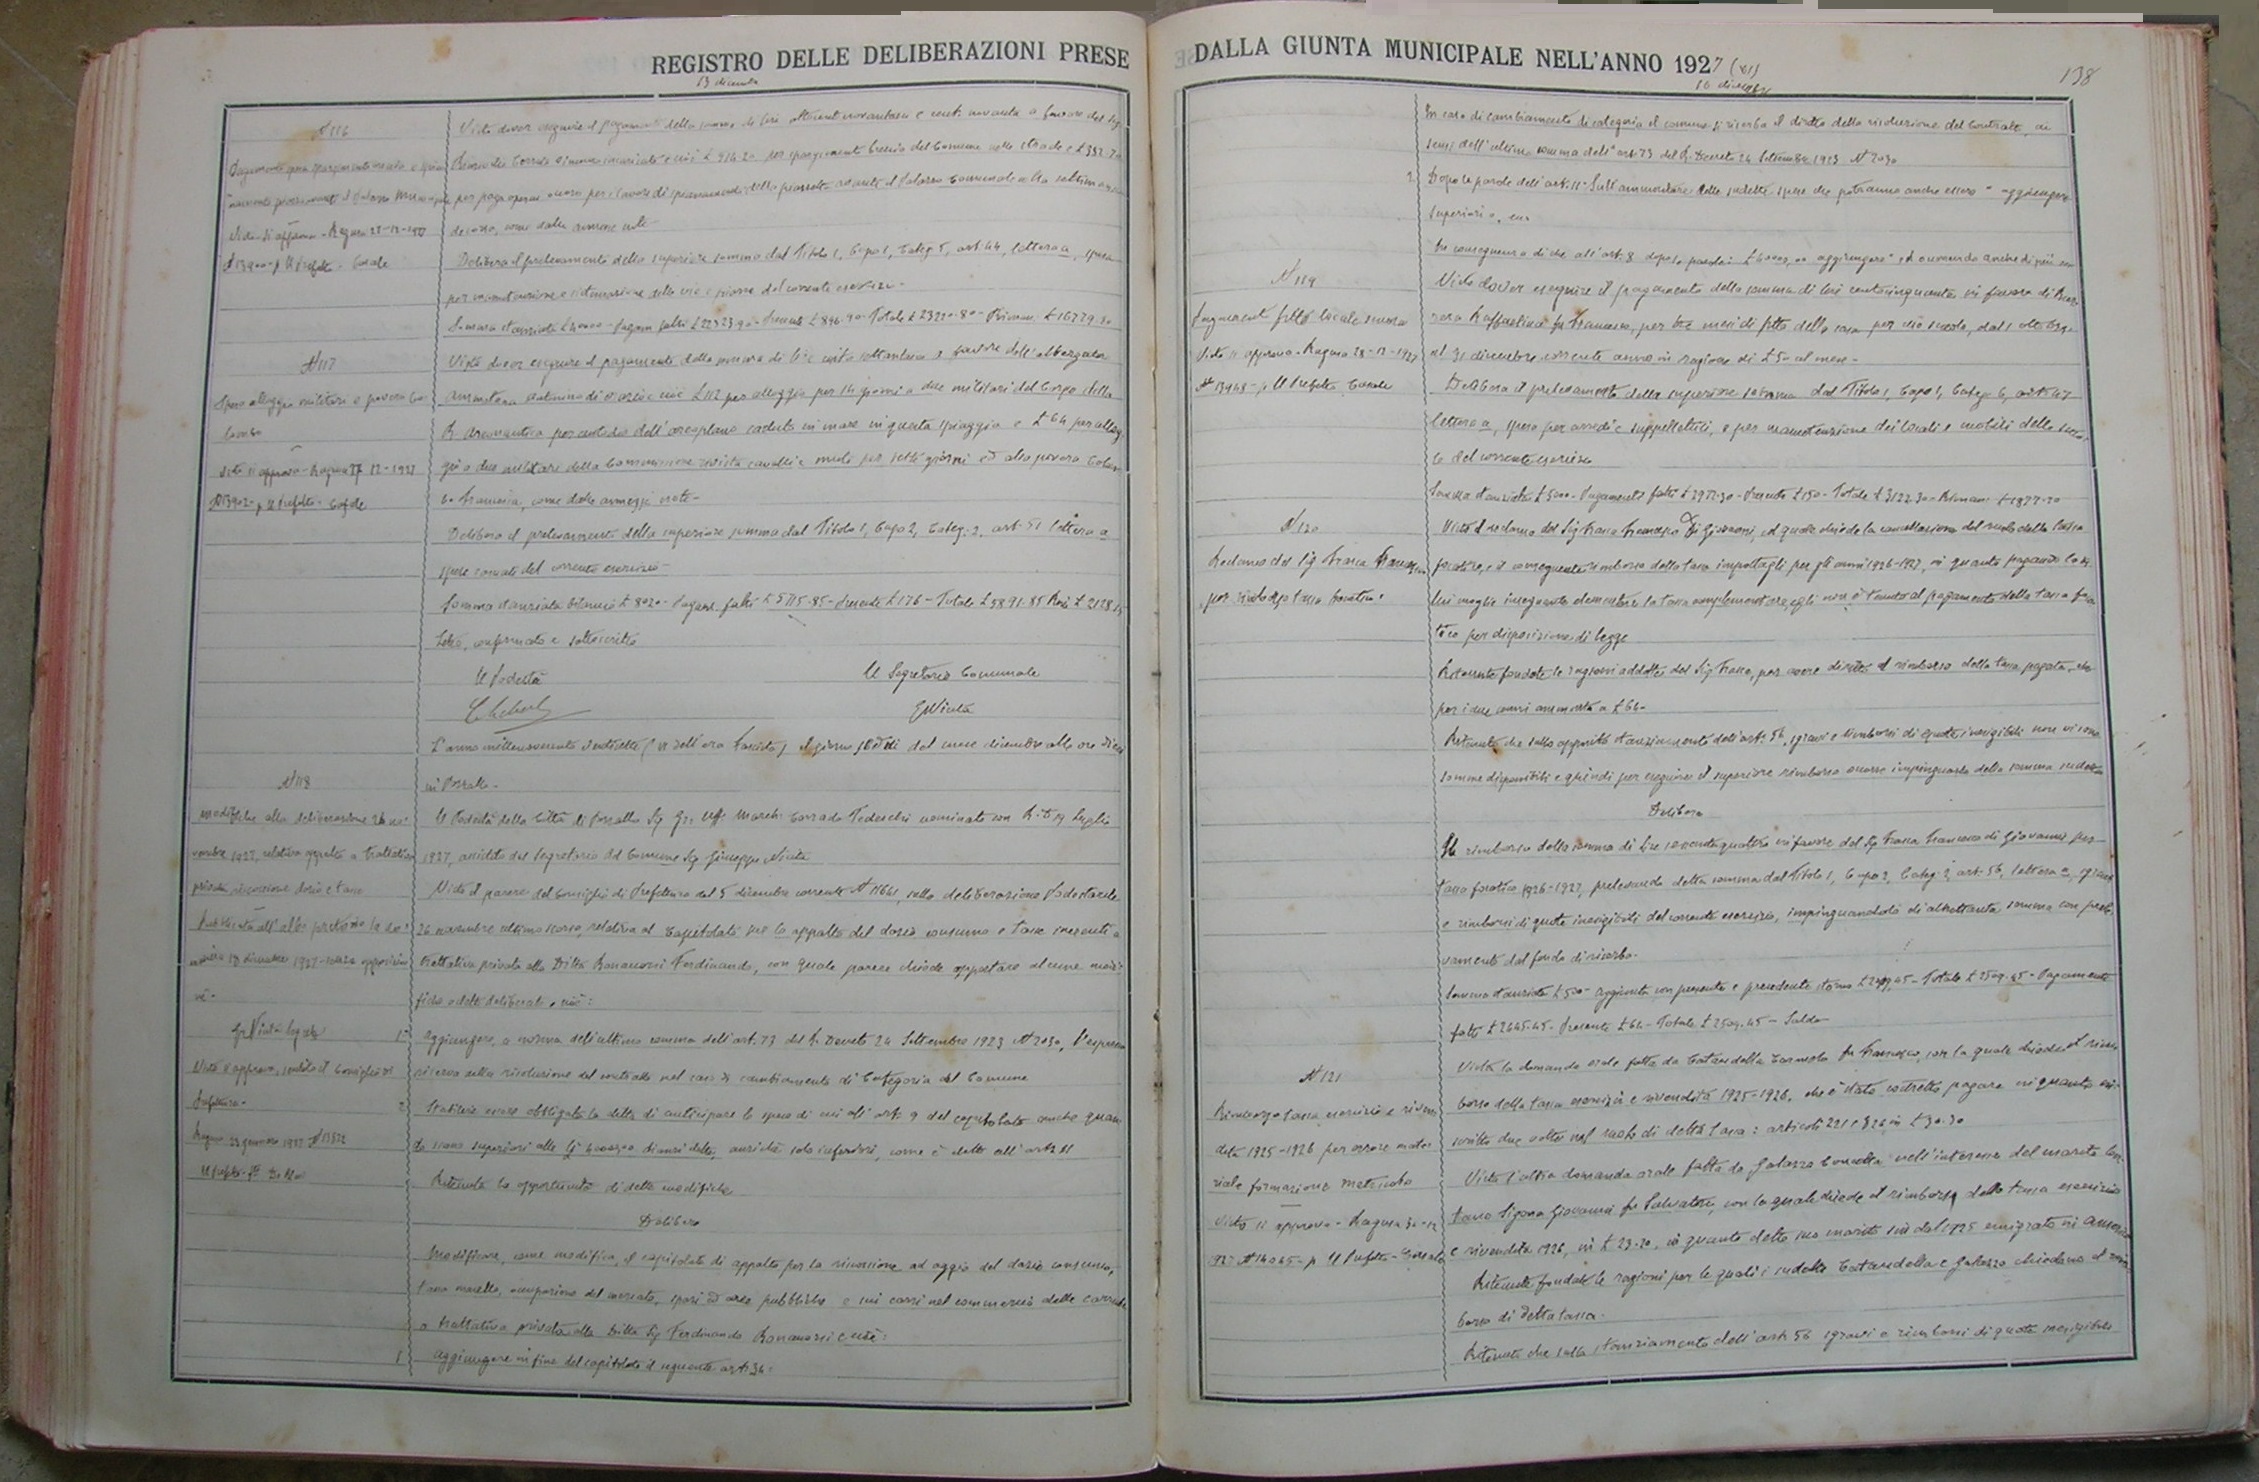 REGISTRO DELLE DELIBERAZIONI PRESE
13 dicembre
N 116
Visto dover eseguire il pagamento della somma di lire ottocentonovantasei e cent. novanta a favore del Sig.
£ 916.20 per spargimento breccia del Comune nelle strade e £ 352.70
per paga operai per lavori di spianamento della piazzetta avante il Palazzo Comunale
Visto si approva - Ragusa 28-12-1927
decorso, come dalle annesse note
N 13900 - p Il Prefetto - Casale
Delibera il prelevamento della superiore somma dal Titolo 1, Capo 1, Categ. 5, art. 44, lettera a, spesa
per manutenzione e sistemazione delle vie e piazze del corrente esercizio -
Somma stanziata £ 40000 - Pagam. fatti £ 22323.90 - Presente £ 896.90 - Totale £ 23220.80 - Riman. £ 16779.20
N 117
Visto dover eseguire il pagamento della somma di lire cento settantasei a favore dell'albergatore
Spesa alloggio militari e povera Co
£ 112 per alloggio per 14 giorni a due militari del Corpo della
lombo
R. Areonautica per custodia dell'areoplano caduto in mare in questa spiaggia e £ 64 per allog
Visto si approva - Ragusa 27 12-1927
gio a due militari della Commissione rivista cavalli e muli per sette giorni ed alla povera Colom
N 13902 - p Il Prefetto - Casale
bo Francesca, come dalle annesse note -
Delibera il prelevamento della superiore somma dal Titolo 1, Capo 2, Categ. 2, art. 51 lettera a
spese casuali del corrente esercizio -
Somma stanziata bilancio £ 8020 - Pagam. fatti £ 5715.85 - Presente £ 176 - Totale £ 5891.85 Rim. £ 2128.15
Letto, confermato e sottoscritto
Il Podestà Il Segretario Comunale
GNicita
L'anno millenovecento ventisette (VI dell'era Fascista) il giorno sedici del mese dicembre alle ore dieci
N 118
in Pozzallo -
modifiche alla deliberazione 26 no-
Il Podestà della Città di Pozzallo Sig. Gr. Uff. March. Corrado Tedeschi nominato con R. D. 19 Luglio
vembre 1927, relativa appalto a trattativa
1927, assistito dal Segretario del Comune Sig. Giuseppe Nicita
privata riscossione dazio e tasse
Visto il parere del Consiglio di Prefettura del 5 dicembre corrente N 11661, sulla deliberazione Podestarile
Pubblicata all'albo pretorio la do-
26 novembre ultimo scorso, relativa al Capitolato per lo appalto del dazio consumo e tasse inerenti a
menica 18 dicembre 1927 - senza opposizio
trattativa privata alla Ditta Bonanossi Ferdinando, con quale parere chiede apportare alcune modi-
ni -
fiche a dette deliberati, cioè:
G. Nicita Segret
1° Aggiungere, a norma dell'ultimo comma dell'art. 73 del R. Decreto 24 Settembre 1923 N 2030, l'espressa
Visto si approva, sentito il Consiglio di
riserva sulla risoluzione del contratto nel caso di cambiamento di Categoria del Comune
Prefettura -
2° Stabilire essere obbligata la ditta di anticipare le spese di cui all'art. 9 del capitolato anche quan
do siano superiori alle anziché solo inferiori, come è detto all'art. 11
Ritenuta la opportunità di dette modifiche
Delibera
Modificare, come modifica, il capitolato di appalto per la riscossione ad aggio del dazio consumo,
tassa macello, occupazione del mercato, spazi ed aree pubbliche
a trattativa privata alla Ditta Sig. Ferdinando Bonanossi e cioè:
1 Aggiungere in fine del capitolato il seguente art. 34:
DALLA GIUNTA MUNICIPALE NELL'ANNO 1927 (VI)
16 dicembre
138
In caso di cambiamento di categoria il comune si riserba il diritto della risoluzione del Contratto, ai
sensi dell'ultimo comma dell'art. 73 del R. Decreto 24 Settembre 1923 N 2030
2 Dopo le parole dell'art. 11 "Sull'ammontare delle sudette spese che potranno anche essere" aggiungere
superiori o, ecc
In conseguenza di che all'art. 8 dopo le parole £ 6000, aggiungere
N 119
Visto dover eseguire il pagamento della somma di lire centocinquanta in favore di
Pagamento fitto locale scuola
Raffaelina fu Francesco, per tre mesi di fitto della casa per uso scuola, dal 1 ottobre
Visto si approva - Ragusa 28-12-1927
al 31 dicembre corrente anno in ragione di £ 50 al mese -
N 13948 - p Il Prefetto Casale
Delibera il prelevamento della superiore somma dal Titolo 1, Capo 1, Categ. 6, art. 47
lettera a, spesa per arredi e suppellettili, e per manutenzione dei locali e mobili delle scuo
le del corrente esercizio
Somma stanziata £ 5000 - Pagamenti fatti £ 2972.30 - Presente £ 150 - Totale £ 3122.30 - Riman. £ 1877.70
N 120
Visto il reclamo del Sig. Frasca Francesco di Giovanni, col quale chiede la cancellazione dal ruolo della tassa
Reclamo del Sig. Frasca Francesco
focatico, e il conseguente rimborso della tassa impostagli per gli anni 1926-1927, in quanto pagando la di
per rimborso tassa focatico
lui moglie insegnante elementare la tassa complementare, egli non è tenuto al pagamento della tassa foca
tico per disposizione di legge
Ritenute fondate le ragioni addotte dal Sig. Frasca, per avere diritto al rimborso della tassa pagata, che
per i due anni ammonta a £ 64 -
Ritenuto che sullo apposito stanziamento dell'art. 56, sgravi e rimborsi di quote inesigibili non vi sono
somme disponibili e quindi per eseguire il superiore rimborso occorre impinguarlo della somma sudetta
Delibera
Il rimborso della somma di lire sessantaquattro in favore del Sig. Frasca Francesco di Giovanni, per
tassa focatico 1926-1927, prelevando detta somma dal Titolo 1, Capo 2, Categ. 2, art. 56, lettera a, sgravi
e rimborsi di quote inesigibili del corrente esercizio, impinguandolo di altrettanta somma con prele
vamento dal fondo di riserba.
Somma stanziata £ 500 - aggiunta con presente e precedente storno - Totale £ 2509.45 - Pagamenti
fatti £ 2445.45 - Presente £ 64 - Totale £ 2509.45 - Saldo
N 121
Vista la domanda orale fatta da Catandella Carmelo fu Francesco con la quale chiede il rim
Rimborso tassa esercizio e riven
borso della tassa esercizi e rivendita 1925-1926, che è stato costretto pagare in quanto in-
dita 1925-1926 per errore mate
scritto due volte nel ruolo di detta tassa: articoli 221 e 326 in £ 30.30
riale formazione matricola
Vista l'altra domanda orale fatta da Galazzo Concetta nell'interesse del marito
Visto si approva - Ragusa 30-12
Sigona Giovanni fu Salvatore, con la quale chiede il rimborso della tassa esercizio
927 N 14045 - p Il Prefetto - Casale
e rivendita 1926, in £ 23.20, in quanto detto suo marito sin dal 1925 emigrato in America
Ritenute fondate le ragioni per le quali i sudetti Catandella e Galazzo chiedono il rim
borso di detta tassa.
Ritenuto che sullo stanziamento dell'art. 56 sgravi e rimborsi di quote inesigibili